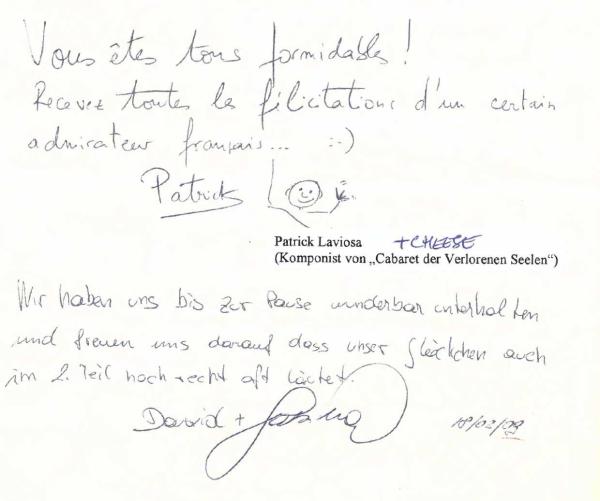 Vous êtes tous formidables !
Recevez toutes les félicitations d'un certain
admirateur français... :-)
Patrick
Patrick Laviosa +CHEESE
(Komponist von „Cabaret der Verlorenen Seelen“)
Wir haben uns bis zur Pause wunderbar unterhalten
und freuen uns darauf dass unser Glöckchen auch
im 2. Teil noch recht oft läutet.
David +
18/02/09